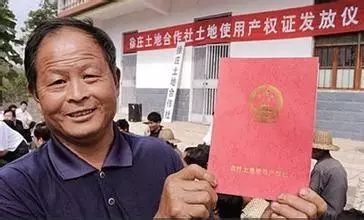 徐庄土地合作社土地使用产权证发放仪
徐庄土地合作社
土地使用产权证